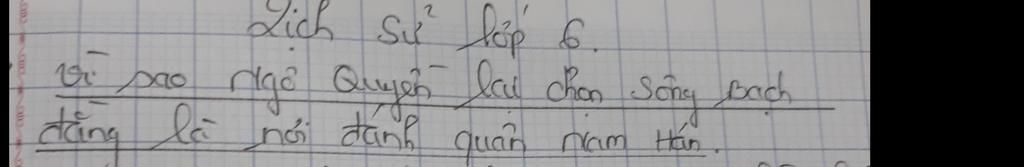 Lịch sử lớp 6.
Vì sao Ngô Quyền lại chọn sông Bạch
đằng là nơi đánh quân Nam Hán.